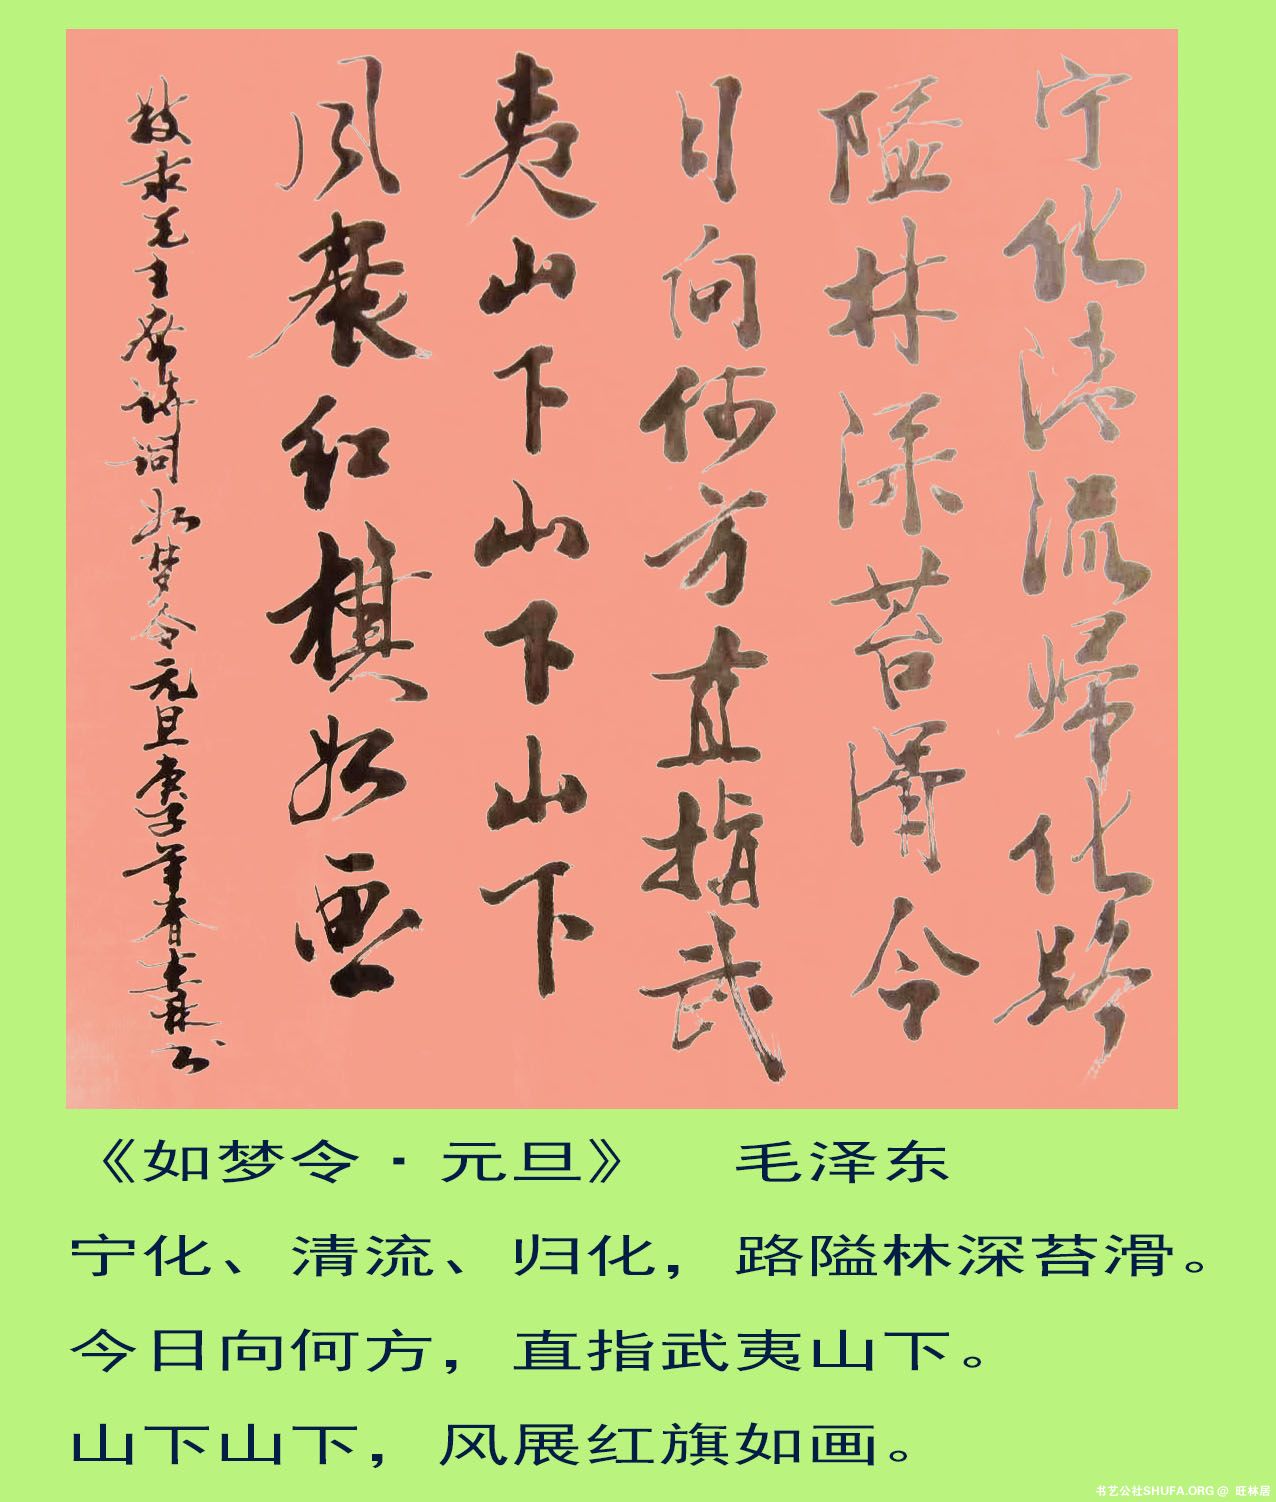 宁化清流帰化路
隘林深苔滑今
日向何方直指武
夷山下山下山下
风展红棋如画
敬录毛主席诗词如梦令元旦庚子年春林书
《如梦令·元旦》 毛泽东
宁化、清流、归化，路隘林深苔滑。
今日向何方，直指武夷山下。
山下山下，风展红旗如画。
书艺公社SHUFA.ORG @ 旺林居